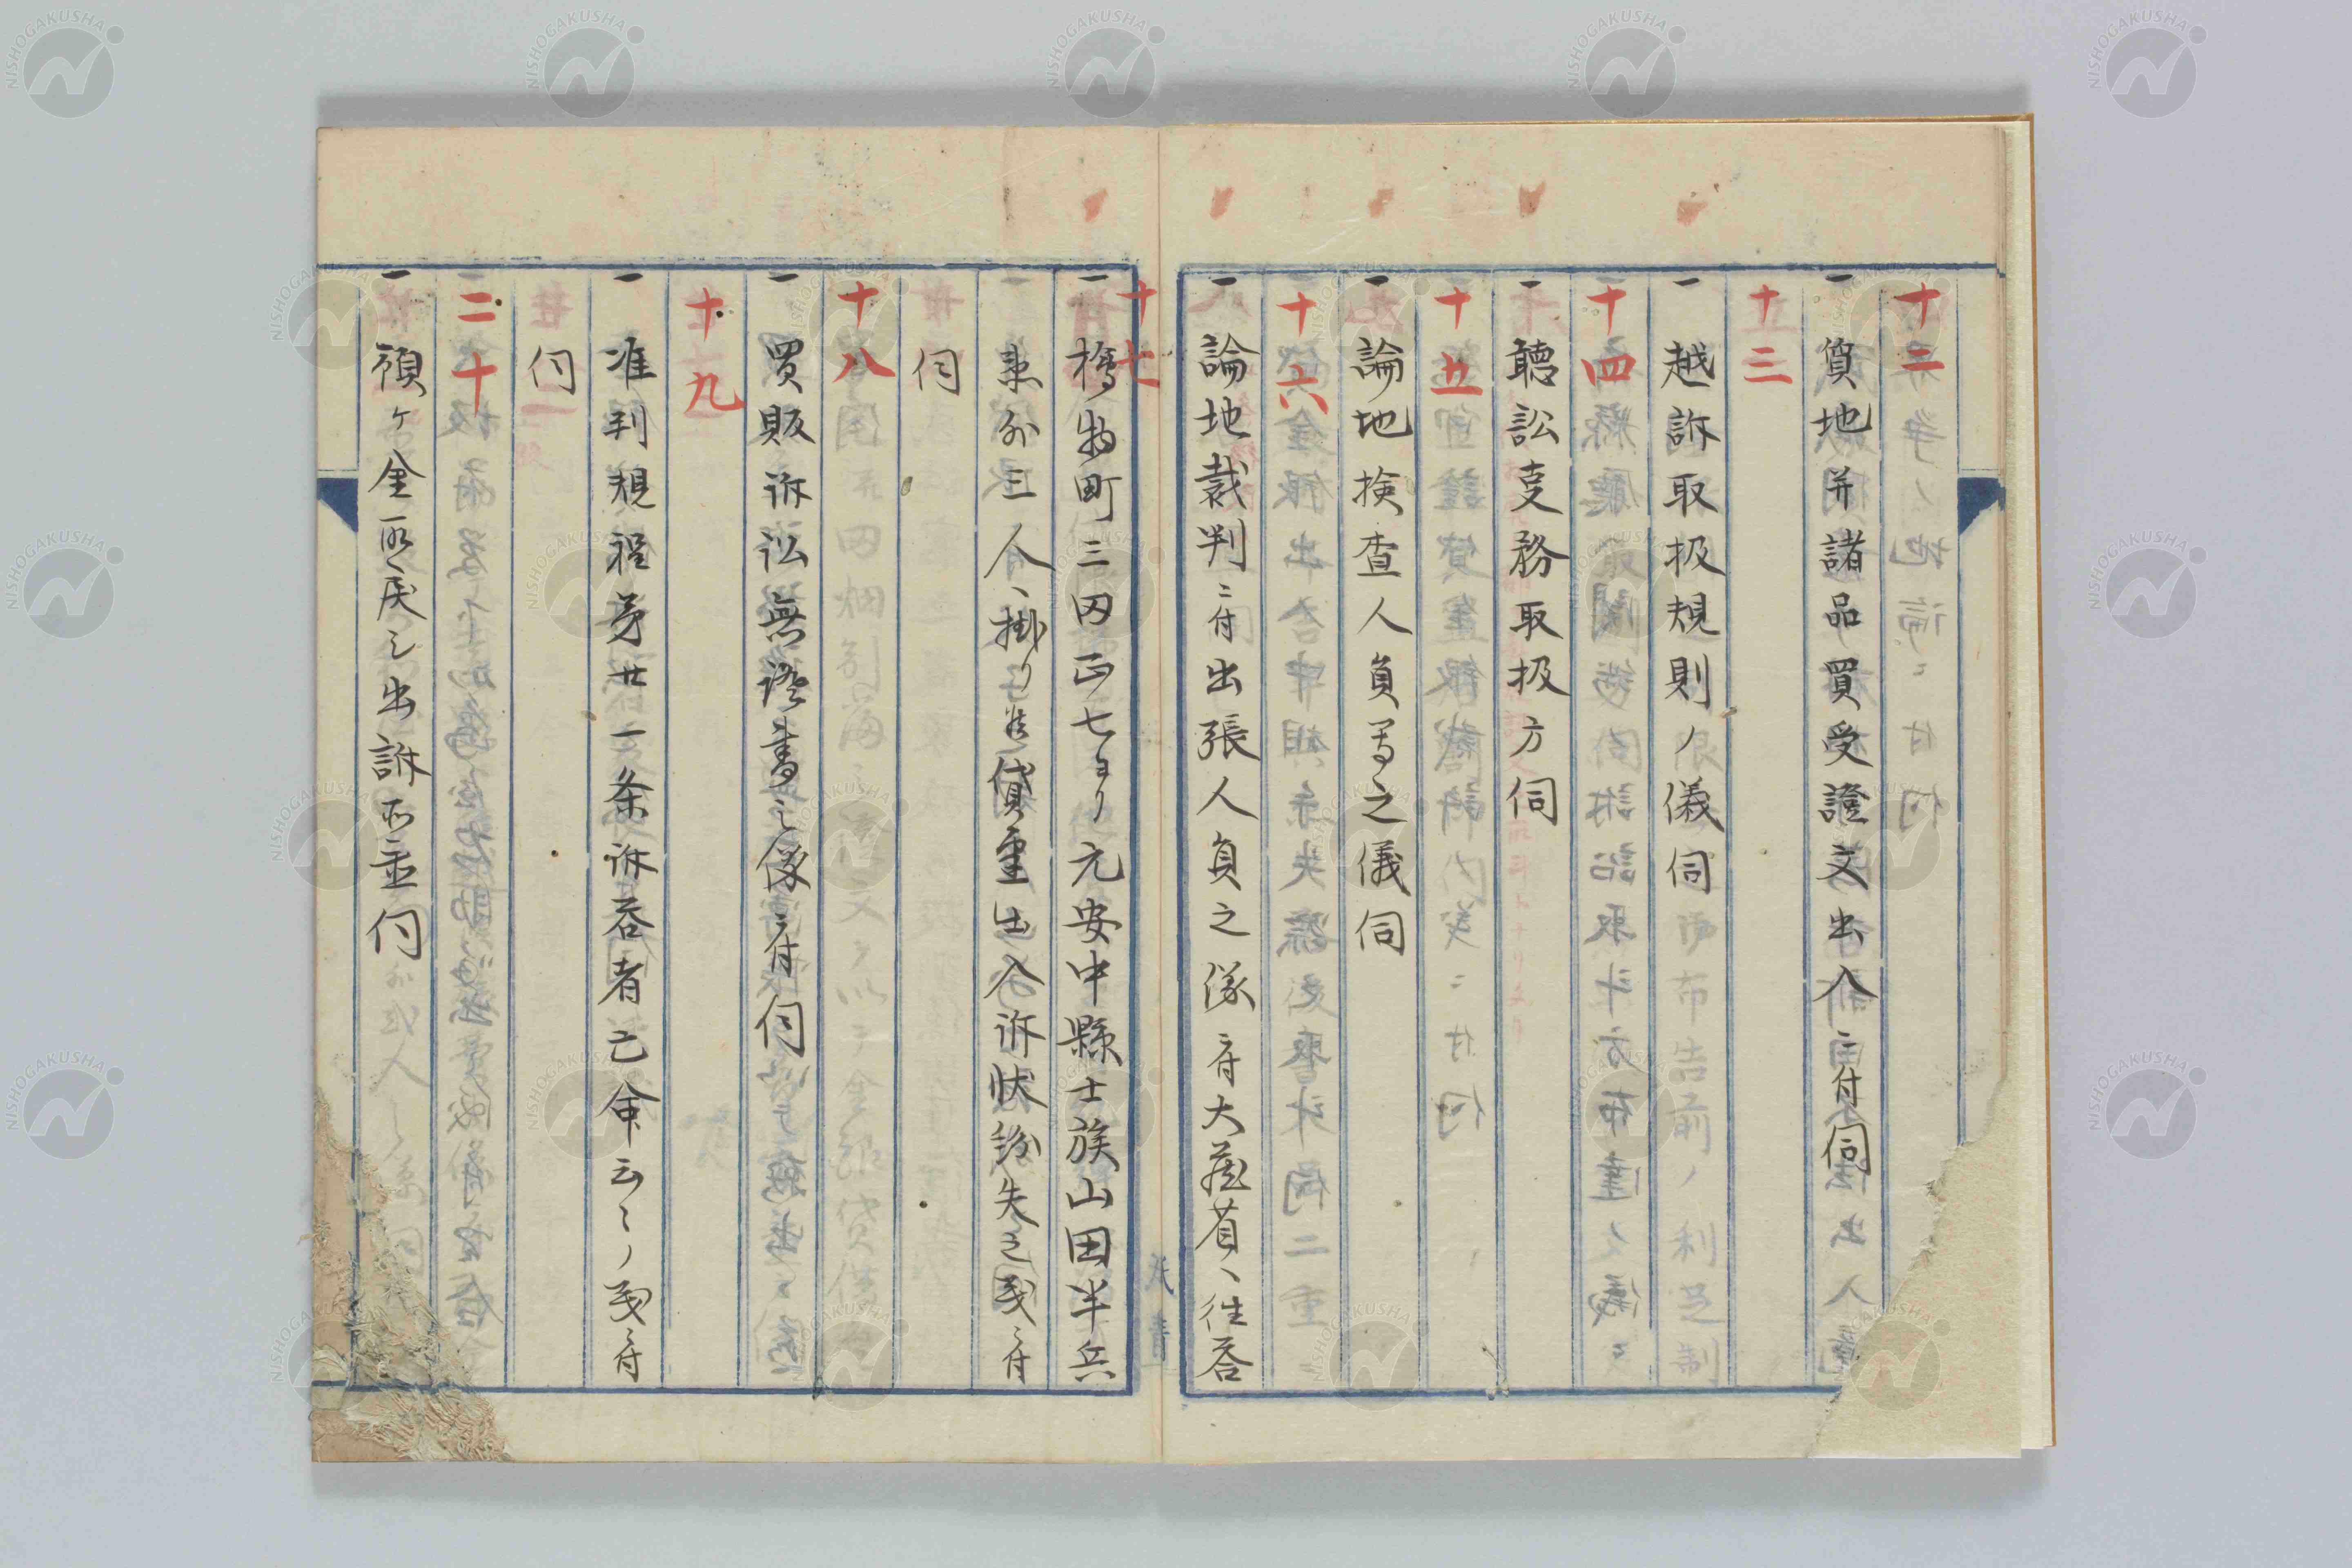 十二
一 質地并諸品買受證文出入ニ付伺
十三
一 越訴取扱規則ノ儀伺
十四
一 聽訟事務取扱方伺
十五
一 論地検査人負等之儀伺
十六
一 論地裁判ニ付出張人負之儀ニ付大蔵省ヘ往答
十七
一 檜物町三四正七ヨリ元安中縣士族山田半兵
外三人ヘ掛リ貸金出入訴状紛失之義ニ付
伺
十八
一 買販訴訟無證書之儀ニ付伺
十九
一 准判規程第廿一条訴答者亡命云々ノ義ニ付
伺
二十
一 預ケ金取戻之出訴
伺
NISHOGAKUSHA